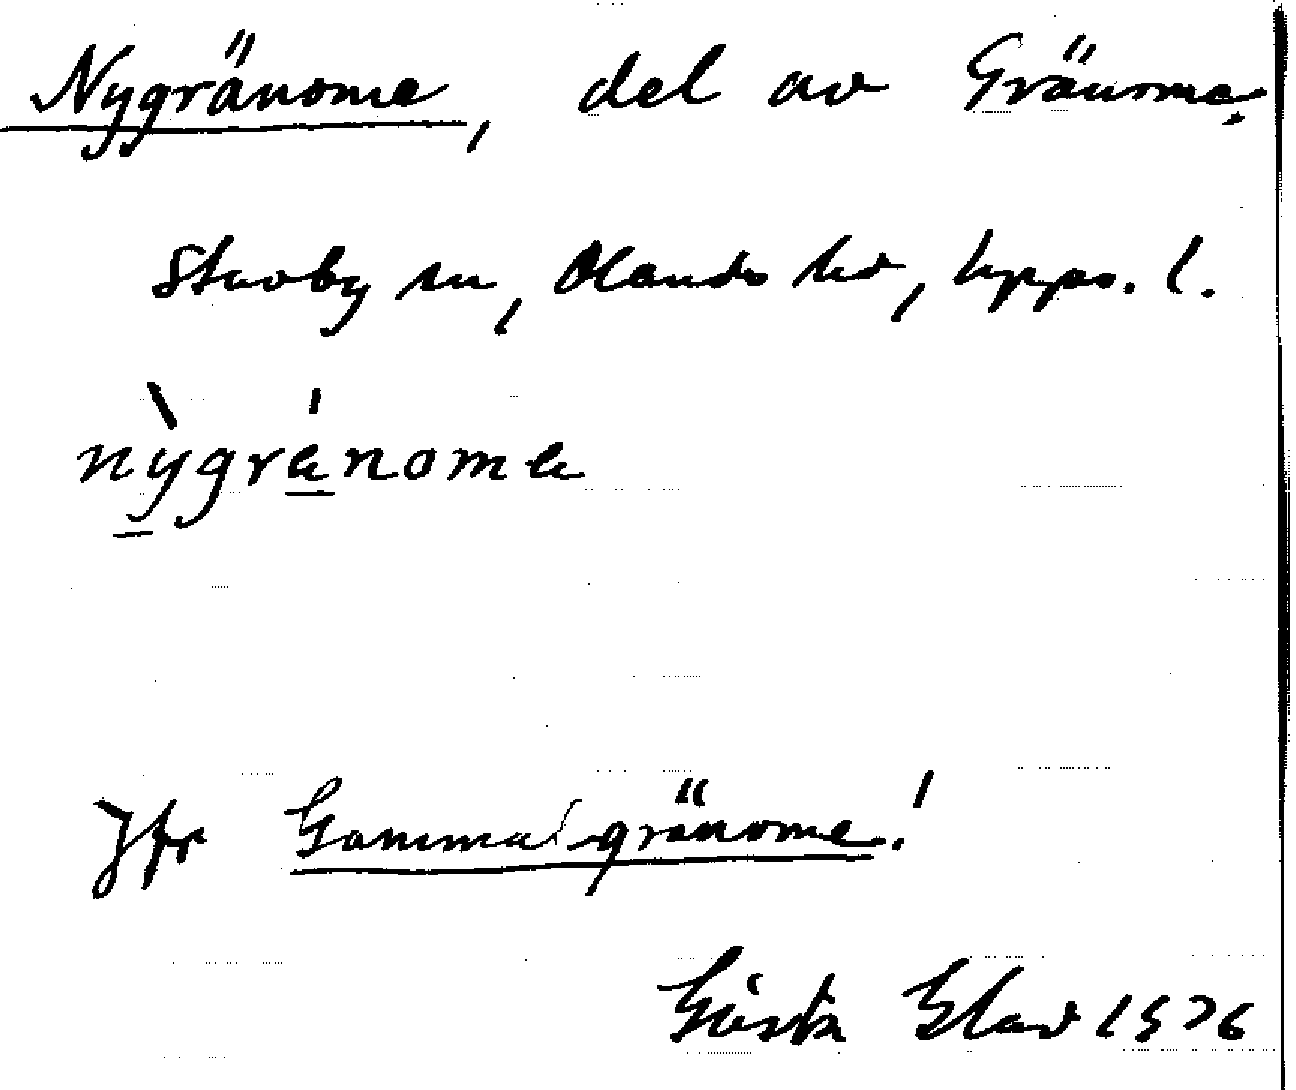 Nygränome, del av Gränome,
Stavby sn, Olands hd, Upps. l.
nỳgránome
Jfr Gammalgränome!
Gösta Elav 1976